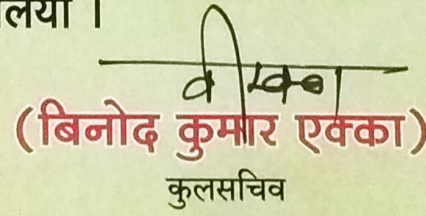 लया ।
(बिनोद कुमार एक्का)
कुलसचिव